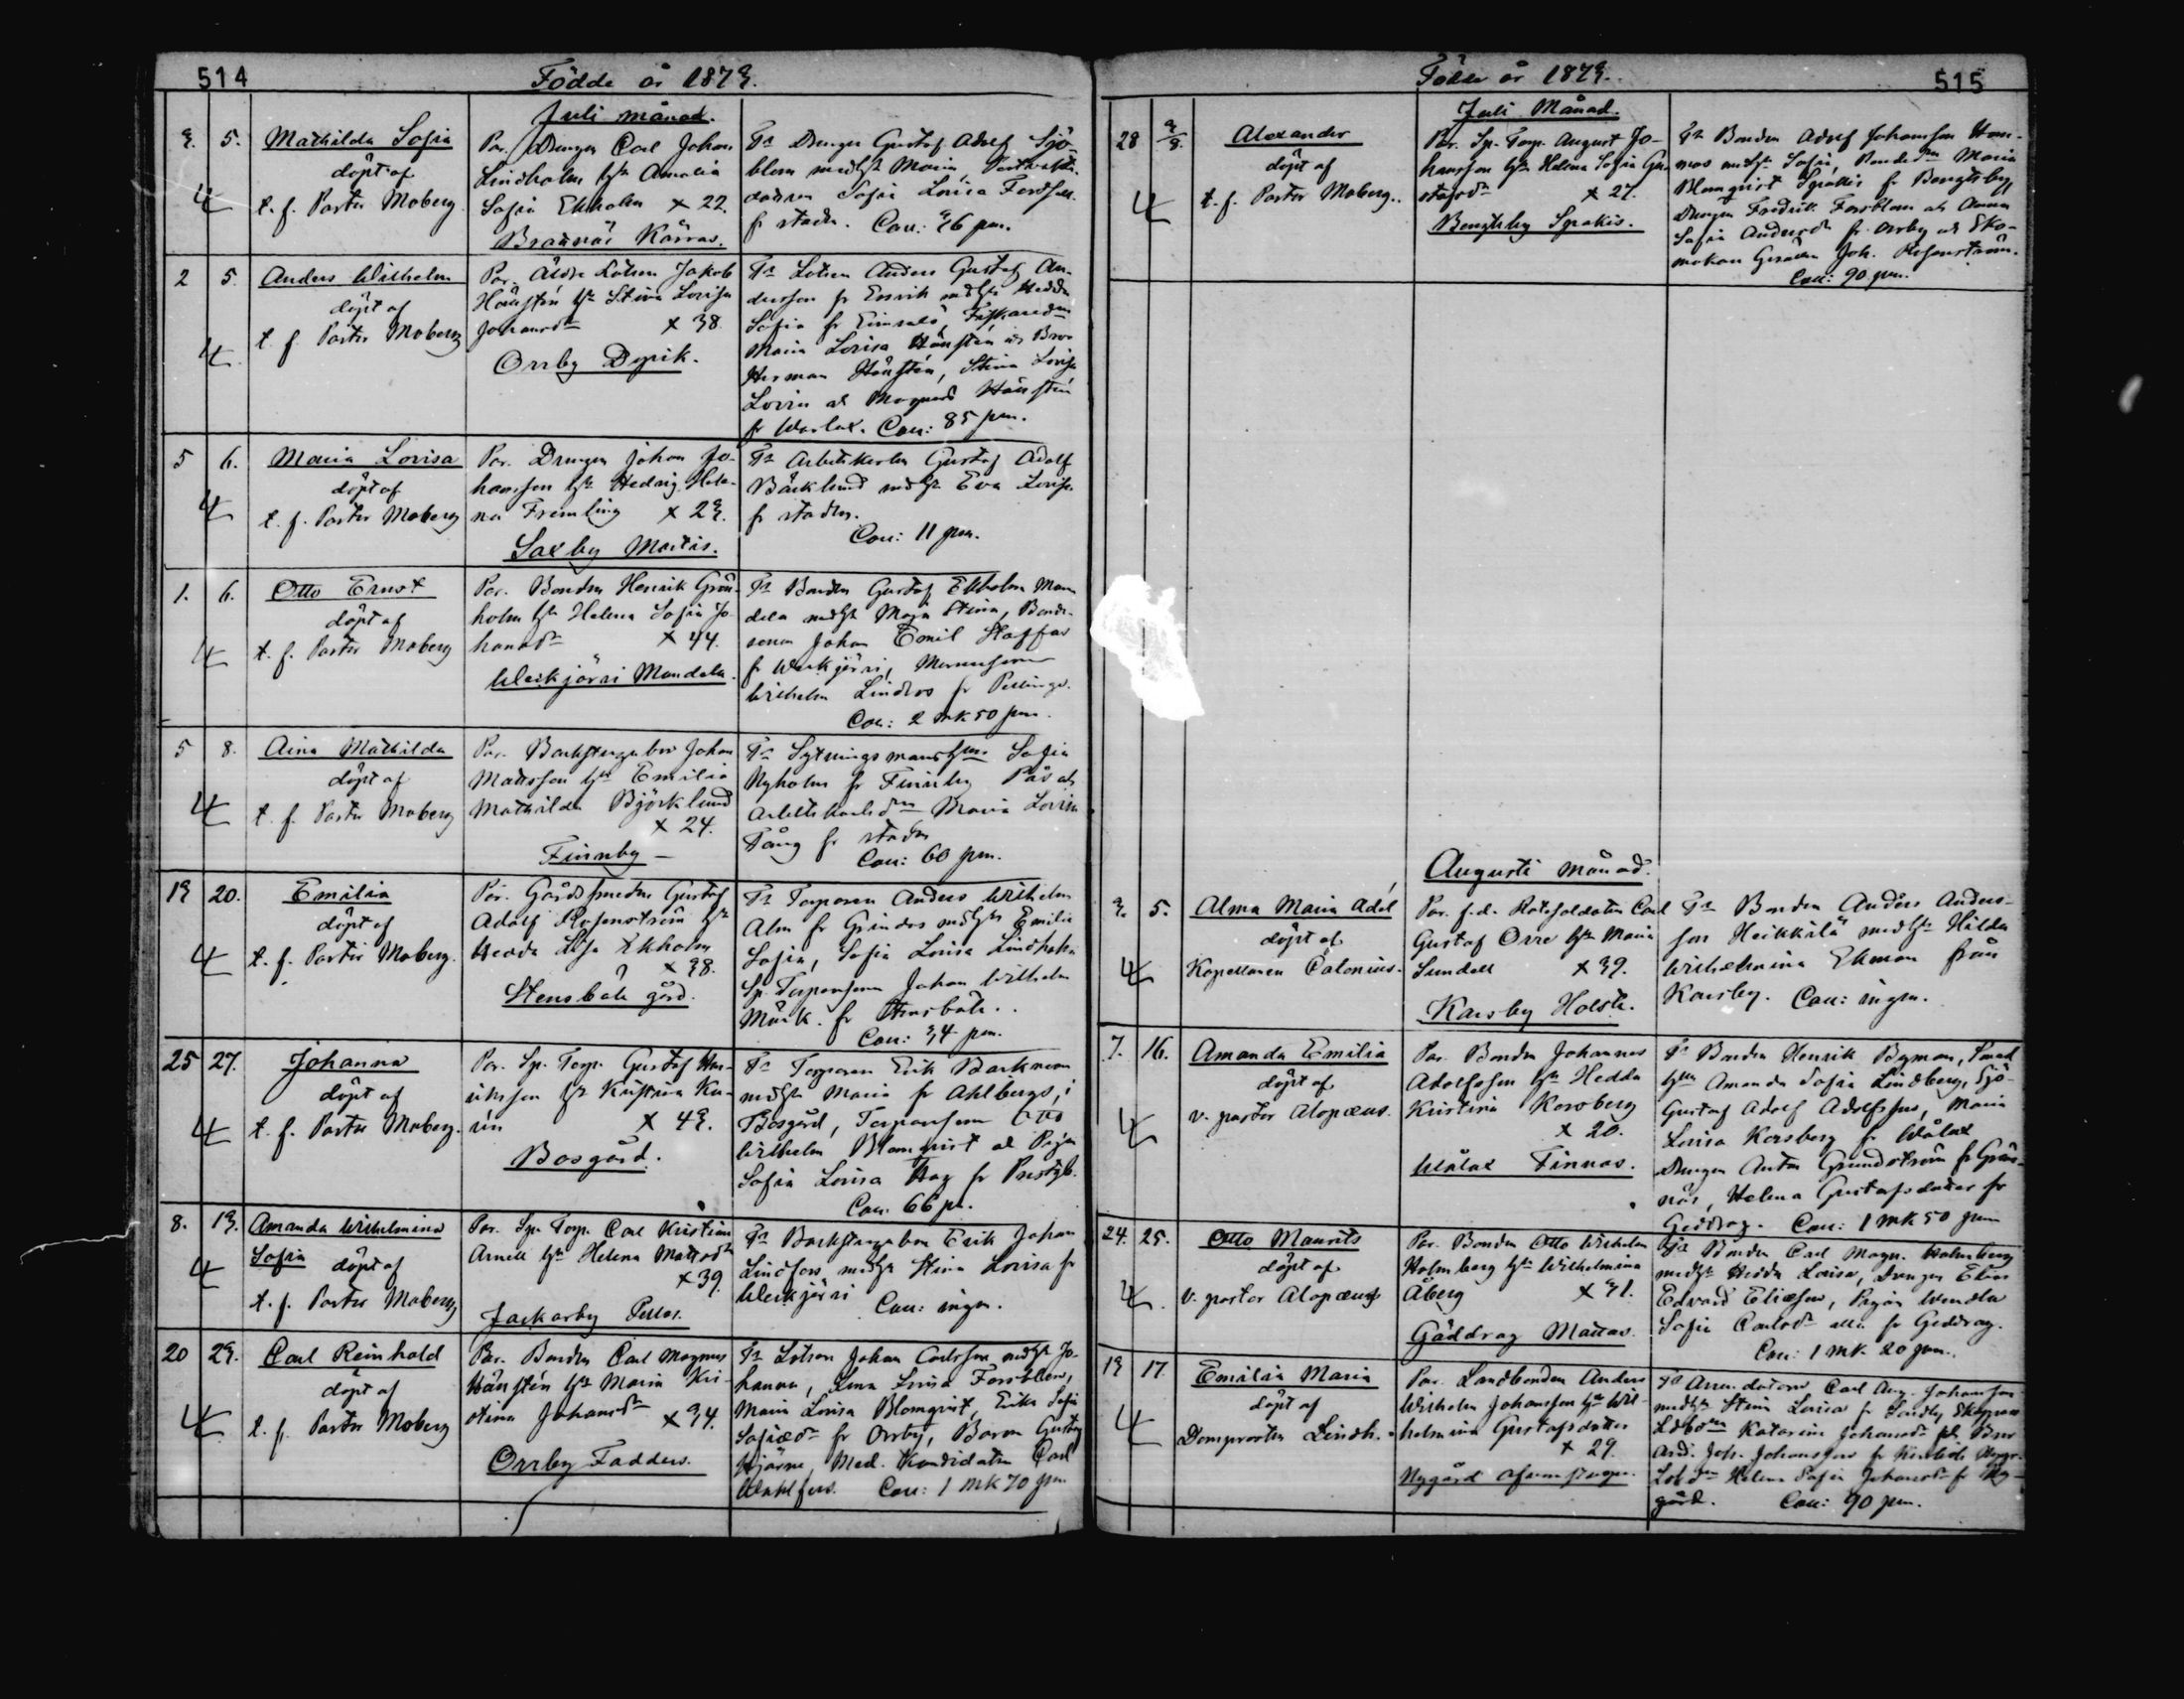 514
Födde år 1873.
Juli månad.
3. 5. Mathilda Sofia
döpt af
t. f. Pastor Moberg.
Par. Drengen Carl Johan
Lindholm hu Amalia
Sofia Ekholm x 22.
Brasnäs Kärras.
Fr Drengen Gustaf Adolf Sjö-
blom med hu Maria,
Sofia Lovisa
fr staden. Coll: 36 pm.
2 5. Anders Wilhelm
döpt af
t. f. Pastor Moberg
Par. Äldre Lotsen Jakob
Hänstén hu Stina Lovisa
Johansdr x 38.
Orrby Dypik.
Fr Lotsen Anders Gustaf An-
dersson fr med hu Hedda
Sofia fr
Maria Lovisa Hänstén och
Herman Hänstén, Stina Lovisa
Lovin och Magnus Hänstén
fr Warlax. Coll: 85 pm.
5 6. Maria Lovisa
döpt af
t. f. Pastor Moberg
Par. Drengen Johan Jo-
hansson hu Hedvig Hele-
na Fremling x 23.
Saxby Mårtis.
Fr Arbetskarlen Gustaf Adolf
Bäcklund med hu Eva Lovisa
fr staden.
Coll: 11 pm.
1. 6. Otto Ernst
döpt af
t. f. Pastor Moberg
Par. Bonden Henrik Grön-
holm hu Helena Sofia Jo-
hansdr x 44.
Weckjärvi Mandela.
Fr Bonden Gustaf Ekholm Man-
dela med hu Maja Stina, Bonde-
sonen Johan Emil Staffas
fr Weckjärvi,
Wilhelm Lindroos fr Pellinge.
Coll: 2 mk 50 pm.
5 8. Aina Mathilda
döpt af
t. f. Pastor Moberg
Par. Backstugubon Johan
Mattsson hu Emilia
Mathilda Björklund
x 24.
Finnby
Fr Sytningsmans hun Sofia
Nyholm fr Finnby Pås och
Arbetskarlsdrn Maria Lovisa
Tång fr staden
Coll: 60 pm.
13 20. Emilia
döpt af
t. f. Pastor Moberg.
Par. Gårdssmeden Gustaf
Adolf Rosenström hu
Hedda Lisa Ekholm
x 38.
Stensböle gård.
Fr Torparen Anders Wilhelm
Alm fr Grindas med hu Emilia
Sofia, Sofia Lovisa Lindholm
Sp. Torparsonen Johan Wilhelm
Mårk. fr Stensböle.
Coll: 34 pm.
25 27. Johanna
döpt af
t. f. Pastor Moberg.
Par. Sp. Torp. Gustaf Hen-
riksson hu Kristina Ku-
x 43.
Bosgård.
Fr Torparen Erik Backman
med hu Maria fr Ahlbergs, i
Bosgård, Torparsonen Otto
Wilhelm Blomqvist och Pigan
Sofia Lovisa Hag fr Prestgb.
Coll: 66 pm.
8. 13. Amanda Wilhelmina
Sofia döpt af
t. f. Pastor Moberg
Par. Sp. Torp. Carl Kristian
Arnell hu Helena Mattsdr
x 39.
Jackarby Pellas.
Fr Backstugubon Erik Johan
Lindfors med hu Stina Lovisa fr
Weckjärvi Coll: ingen.
20 23. Carl Reinhold
döpt af
t. f. Pastor Moberg
Par. Bonden Carl Magnus
Hänstén hu Maria Kri-
stina Johansdr x 34.
Orrby Fadders.
Fr Lotsen Johan Carlsson med hu Jo-
hanna, Lena Lovisa Forsblom,
Maria Lovisa Blomqvist, Erika Sofia
fr Orrby, Baron Gustaf
Hjärne, Med. Kandidaten Carl
Wahlfors. Coll: 1 mk 70 pm
515
Födde år 1873.
Juli Månad.
28 3/8. Alexander
döpt af
t. f. Pastor Moberg.
Par. Sp. Torp. August Jo-
hansson hu Helena Sofia Gu-
stafsdr x 27.
Bengtsby Sprakis.
Fr Bonden Adolf Johansson
med hu Sofia, Bondedrn Maria
Blomqvist Sprakis fr Bengtsby,
Drengen Fredrik Forsblom och Anna
Sofia Andersdr fr Orrby och Sko-
makare Gesällen Joh. Rosenström.
Coll: 90 pm.
Augusti månad.
3. 5. Alma Maria Adél
döpt af
Kapellanen Calonius.
Par. f.d. Rotesoldaten Carl
Gustaf Orre hu Maria
Sundell x 39.
Karsby Holste.
Fr Bonden Anders Anders-
son Heikkilä med hu Hilda
Wilhelmina Ekman från
Karsby. Coll: ingen.
7. 16. Amanda Emilia
döpt af
v. pastor Alopæus.
Par. Bonden Johannes
Adolfsson hu Hedda
Kristina Korsberg
x 20.
Wålax Finnas.
Fr Bonden Henrik Byman, Smed
hun Amanda Sofia Lindberg,
Gustaf Adolf Adolfsson, Maria
Lovisa Korsberg fr Wålax
Drengen Anton Grundström fr Grän-
näs, Helena Gustafsdotter fr
Geddrag. Coll: 1 mk 50 pm
24. 25. Otto Maurits
döpt af
v. pastor Alopæus
Par. Bonden Otto Wilhelm
Holmberg hu Wilhelmina
Åberg x 31.
Gäddrag Mattas.
Fr Bonden Carl Magn. Holmberg
med hu Hedda Lovisa, Drengen Elias
Edvard Eliasson, Pigan Wendla
Sofia Carlsdr alla fr Geddrag.
Coll: 1 mk. 20 pm.
13 17. Emilia Maria
döpt af
Domprosten Lindh.
Par. Landbonden Anders
Wilhelm Johansson hu Wil-
helmina Gustafsdotter
x 29.
Nygård
Fr Arrendatorn Carl Aug. Johansson
med hu Stina Lovisa fr
Katarina Johansdr och
Joh. Johansson fr
Helena Sofia Johansdr fr Ny-
gård. Coll: 90 pm.